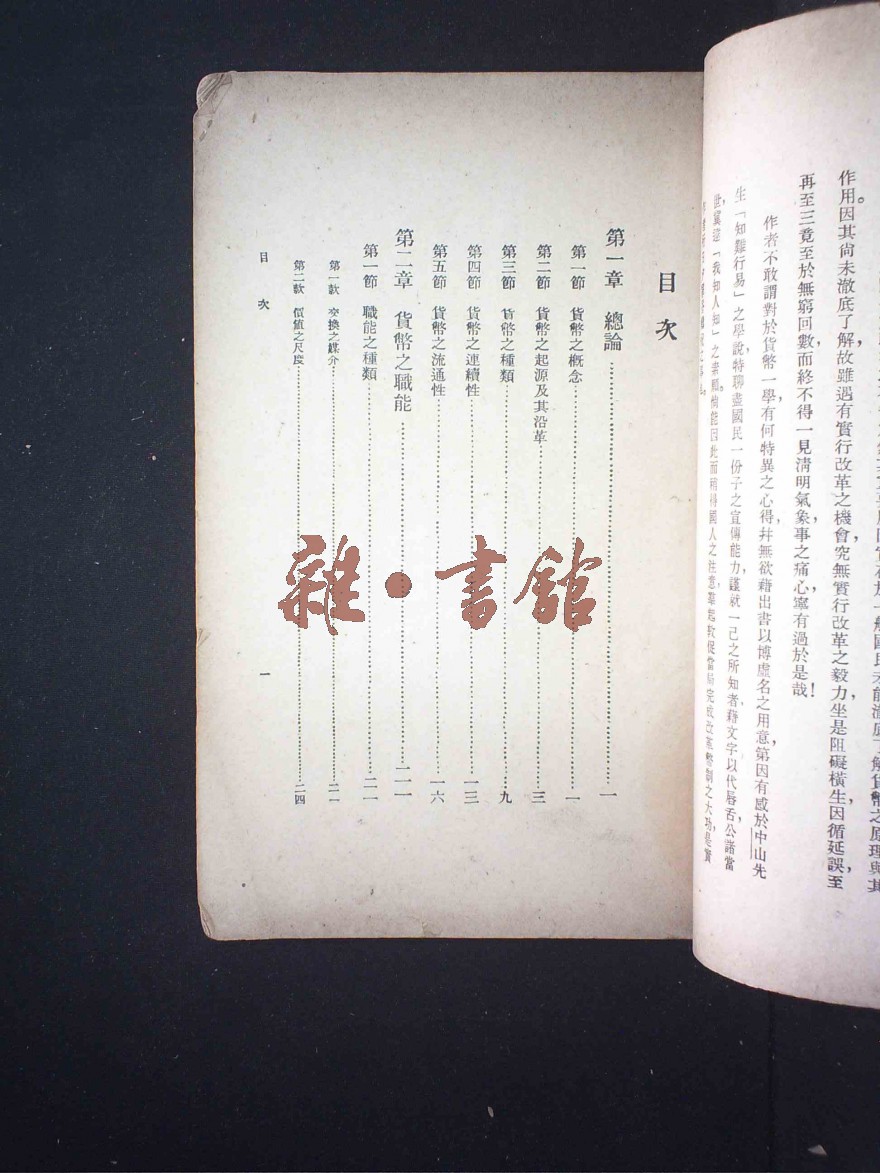 作用。因其尙未澈底了解,故雖遇有實行改革之機會,究無實行改革之毅力,坐是阻礙橫生,因循延誤,至
再至三,竟至於無窮回數,而終不得一見淸明氣象,事之痛心,寧有過於是哉!
作者不敢謂對於貨幣一學,有何特異之心得,幷無欲藉出書以博虛名之用意,第因有感於中山先
生「知難行易」之學說,特聊盡國民一份子之宣傳能力,謹就一己之所知者,藉文字以代唇舌,公諸當
世,冀達「我知人知」之素願。倘能因此而稍得國人之注意,羣起敦促當局完成改革幣制之大功,是實
目次
第一章 總論……一
第一節 貨幣之槪念……一
第二節 貨幣之起源及其沿革……三
第三節 貨幣之種類……九
第四節 貨幣之連續性……一三
第五節 貨幣之流通性……一六
第二章 貨幣之職能……二一
第一節 職能之種類……二一
第一款 交換之媒介……二一
第二款 價值之尺度……二四
目次
一
雜·書館